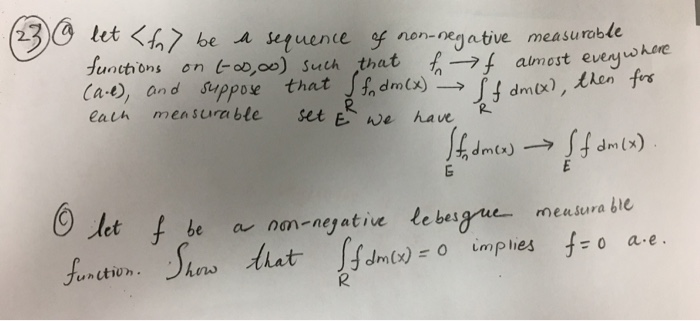 23 a let <fn> be a sequence of non-negative measurable
functions on (-∞,∞) such that fn → f almost everywhere
(a.e), and suppose that ∫R fn dm(x) → ∫R f dm(x), then for
each mensurable set E we have
∫E fn dm(x) → ∫E f dm(x).
c let f be a non-negative lebesgue measurable
function. Show that ∫R f dm(x) = 0 implies f=0 a.e.